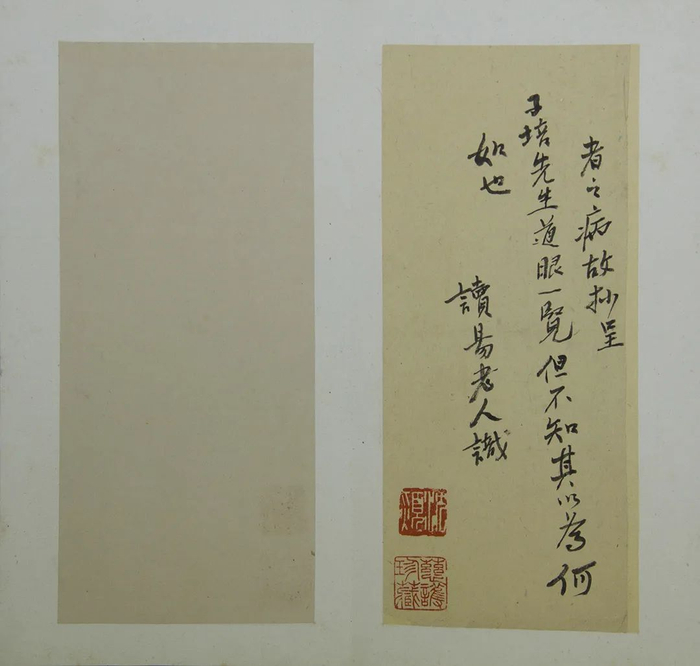 者之病故抄呈
子培先生道眼一覽但不知其以為何
如也
讀易老人識